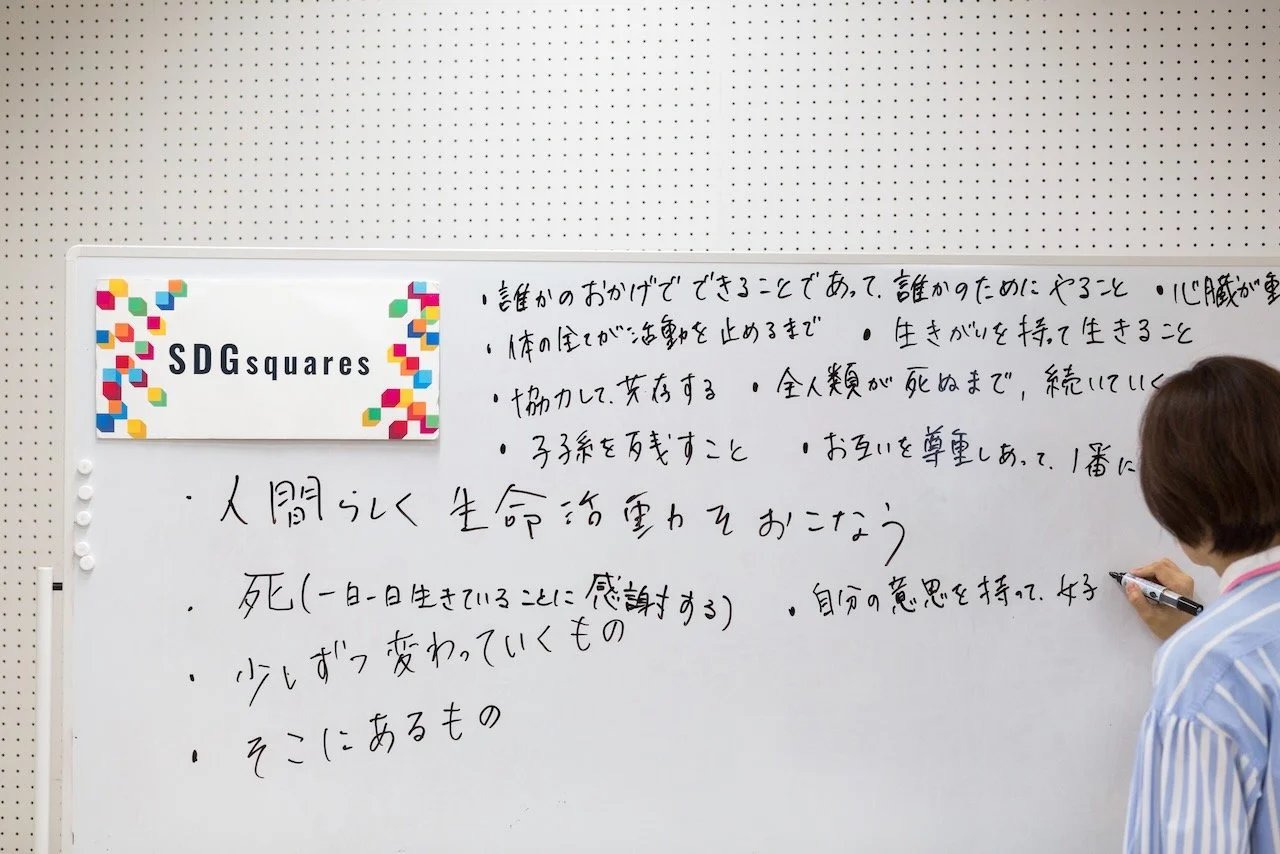 SDGsquares
・誰かのおかげでできることであって、誰かのためにやること ・心臓が動
・体の全てが活動を止めるまで ・生きがいを持って生きること
・協力して、共存する ・全人類が死ぬまで,続いていく
・子子孫を残すこと ・お互いを尊重しあって、1番に
・人間らしく生命活動をおこなう
・死(一日一日生きていることに感謝する) ・自分の意思を持って、好
・少しずつ変わっていくもの
・そこにあるもの